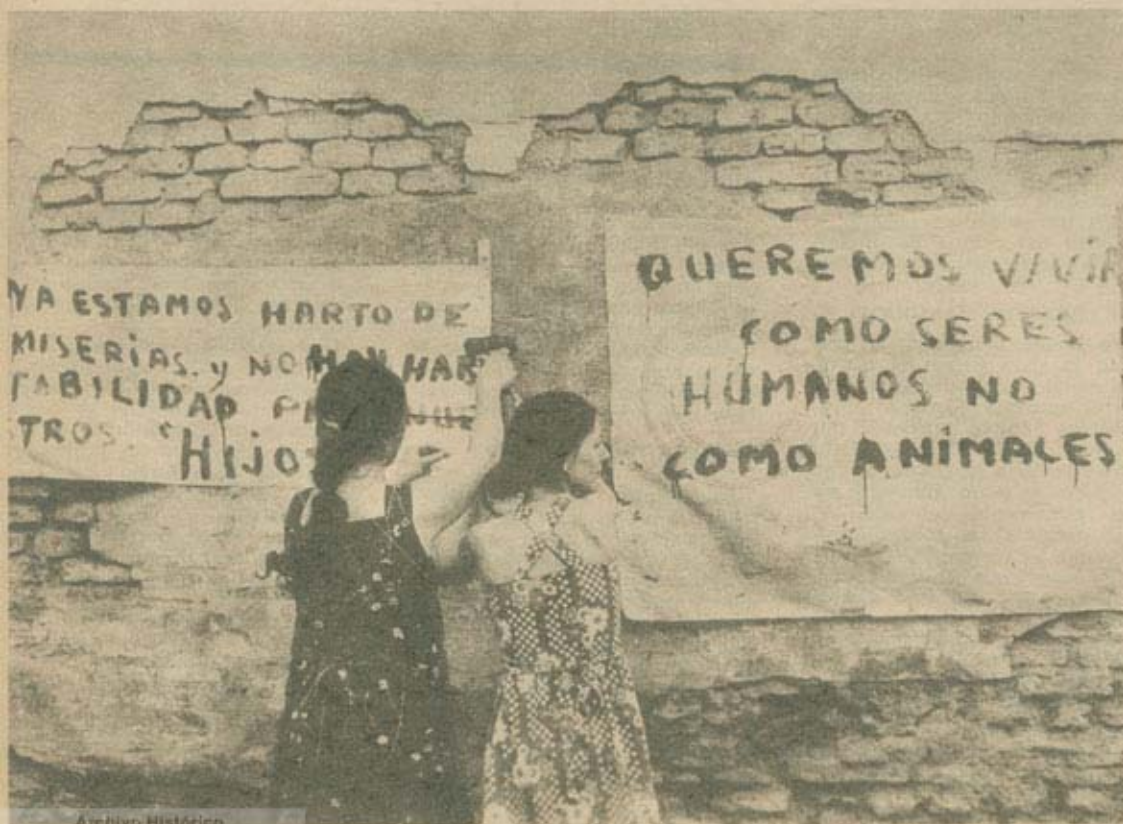 YA ESTAMOS HARTO DE
MISERIAS. y NO HAY HAB
TABILIDAD
TROS. "HIJO
QUEREMOS VIVIR
COMO SERES
HUMANOS NO
COMO ANIMALES
Archivo Histórico